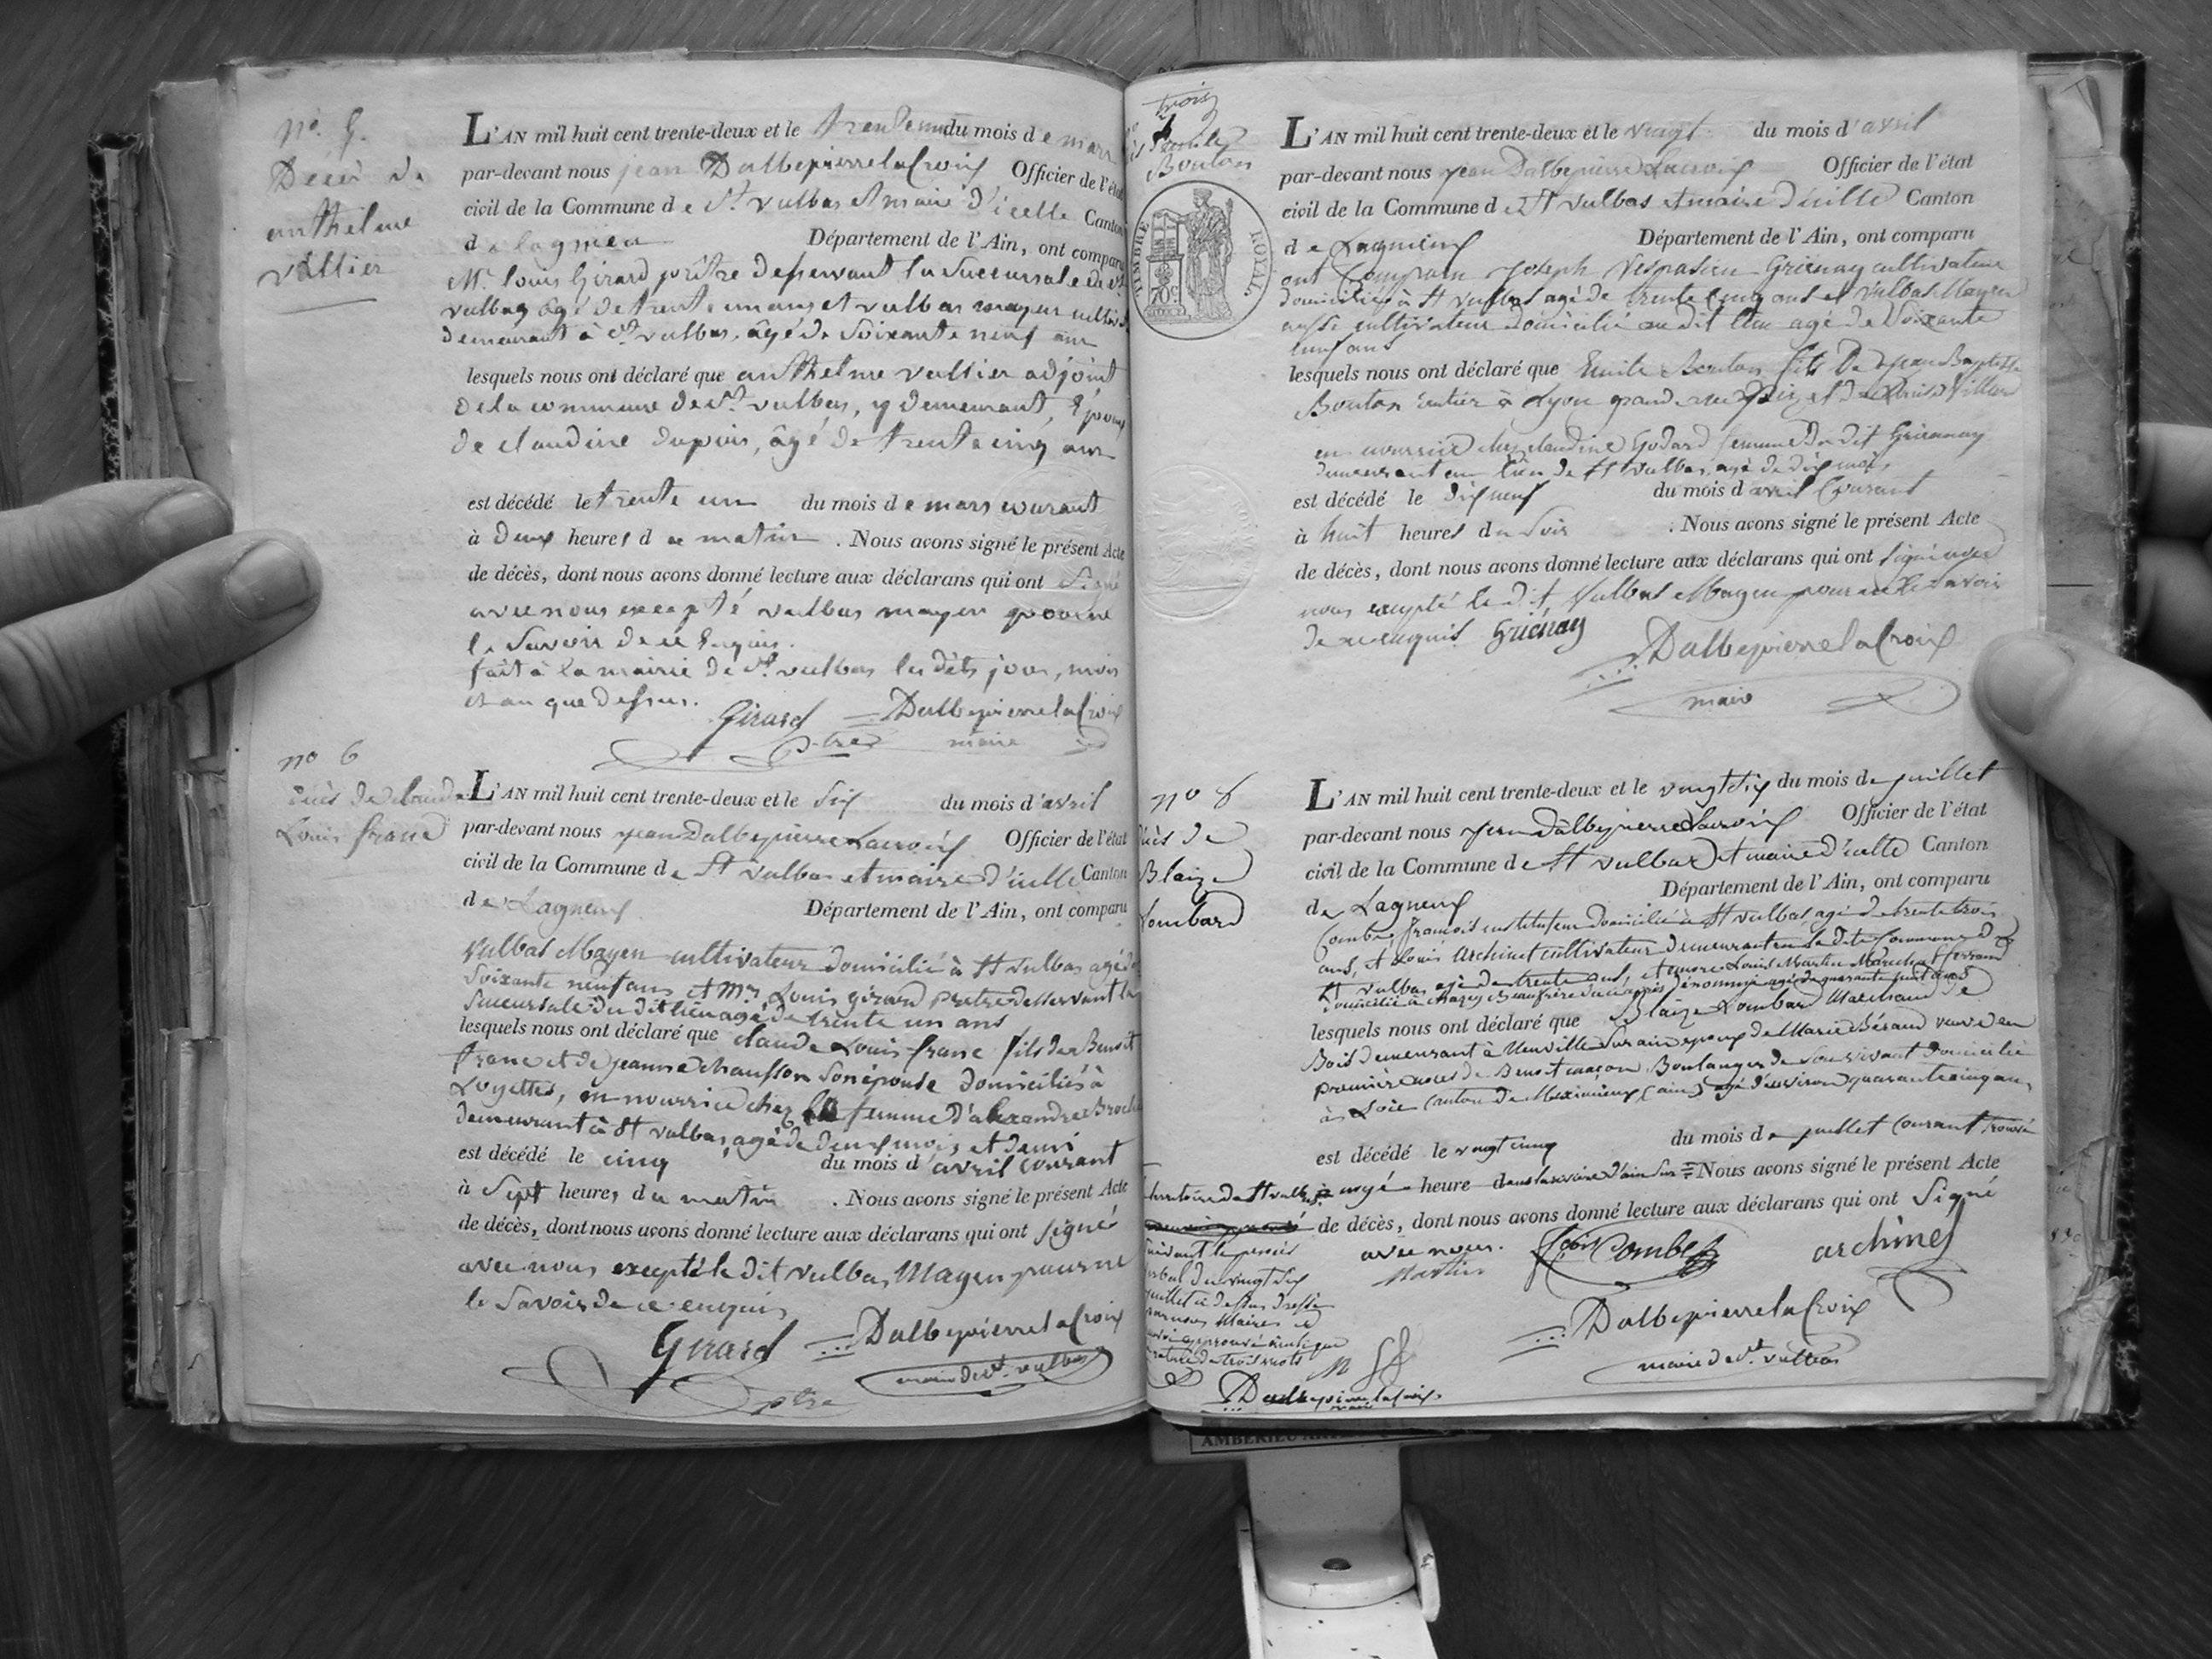 n°. 5.
Décès de
anthelme
vallier
L'AN mil huit cent trente-deux et le trente un du mois de mars
par-devant nous jean Dalbepierrelacroix Officier de l'état
civil de la Commune de St. vulbas et maire d'icelle Canton
de lagnieu Département de l'Ain, ont comparu
Mr. louis Girard prêtre desservant la succursale de st
vulbas âgé de trente un ans et vulbas mayen
demeurant à st. vulbas, âgé de soixante neuf ans
lesquels nous ont déclaré que anthelme vallier adjoint
de la commune de st. vulbas, y demeurant, époux
de claudine dupuis, âgé de trente cinq ans
est décédé le trente un du mois de mars courant
à deux heures du matin . Nous avons signé le présent Acte
de décès, dont nous avons donné lecture aux déclarans qui ont signé
avec nous excepté vulbas mayen pour ne
le savoir de ce enquis.
fait à la mairie de st. vulbas les dits jour, mois
et an que dessus.
Girard Dalbepierrelacroix
ptre maire
n° 6
décès de claude
Louis franc
L'AN mil huit cent trente-deux et le six du mois d'avril
par-devant nous jean Dalbepierre Lacroix Officier de l'état
civil de la Commune de St vulbas et maire d'icelle Canton
de Lagneux Département de l'Ain, ont comparu
Vulbas Mayen cultivateur domicilié à St vulbas agé de
soixante neuf ans et Mr. Louis girard pretre desservant la
succursale du dit lieu agé de trente un ans
lesquels nous ont déclaré que claude Louis franc fils de Benoit
franc et de jeanne chausson son épouse domiciliés à
Loyettes, en nourrice chez la femme d'alexandre
demeurant à St vulbas, agé de deux mois et demi
est décédé le cinq du mois d'avril courant
à sept heures du matin . Nous avons signé le présent Acte
de décès, dont nous avons donné lecture aux déclarans qui ont signé
avec nous excepté le dit vulbas Mayen pour ne
le savoir de ce enquis
Girard Dalbepierrelacroix
ptre maire de st. vulbas
Emile
Bouton
TIMBRE ROYAL
70c
L'AN mil huit cent trente-deux et le vingt du mois d'avril
par-devant nous jean Dalbepierre Lacroix Officier de l'état
civil de la Commune de St vulbas et maire d'icelle Canton
de Lagnieux Département de l'Ain, ont comparu
ont Comparu Joseph Vespasien Grienay cultivateur
domicilié à St vulbas agé de trente cinq ans et Vulbas Mayen
aussi cultivateur domicilié au dit lieu agé de Soixante
neuf ans
lesquels nous ont déclaré que Emile Bouton fils de Jean Baptiste
Bouton rentier à Lyon grande rue et de Villard
en nourrice chez claudine Godard femme du dit Grienay
demeurant au lieu de St vulbas, agé de dix mois
est décédé le dix neuf du mois d'avril Courant
à huit heures du soir . Nous avons signé le présent Acte
de décès, dont nous avons donné lecture aux déclarans qui ont signé avec
nous excepté le dit Vulbas Mayen pour ne le savoir
de ce enquis Grienay
Dalbepierrelacroix
maire
n° 8
décès de
Blaize
Lombard
L'AN mil huit cent trente-deux et le vingt six du mois de juillet
par-devant nous jean Dalbepierre Lacroix Officier de l'état
civil de la Commune de St vulbas et maire d'icelle Canton
de Lagneux Département de l'Ain, ont comparu
Combe françois instituteur domicilié à St vulbas, agé de trente trois
ans, et Louis Archinet cultivateur demeurant en la dite Commune de
St vulbas agé de trente ans, et encore Louis Martin Marechal ferrand
domicilié à beaufrère du ci après dénommé agé de quarante huit ans
lesquels nous ont déclaré que Blaize Lombard Marchand de
Bois demeurant à Neuville sur ain epoux de Marie Béraud veuve en
première noces de Benoit maçon Boulanger de son vivant domicilié
à Loie canton de Meximieux, (ain) agé d'environ quarante cinq ans
est décédé le vingt cinq du mois de juillet courant trouvé
territoire de St vulbas noyé heure dans la rivière d'ain sur Nous avons signé le présent Acte
de décès, dont nous avons donné lecture aux déclarans qui ont signé
avec nous. Martin fçois Combe archinet
suivant le procès
verbal du vingt six
juillet ci dessus dressé
par nous Maires
Dalbepierrelacroix
maire de st. vulbas
Dalbepierrelacroix
maire